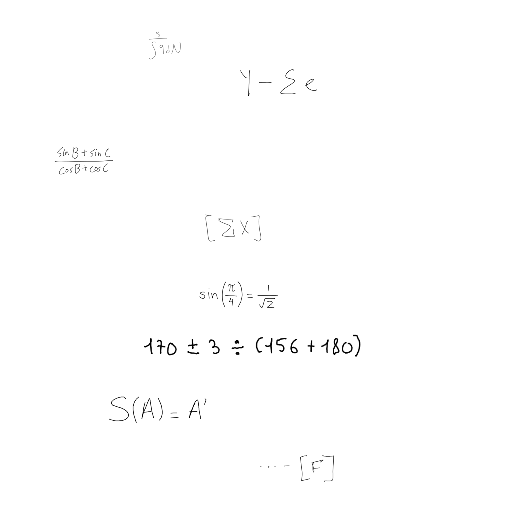 Y - Σ e
sin B + sin C / cos B + cos C
[Σ X]
sin(π/4) = 1/√2
170 ± 3 ÷ (156 + 180)
S(A) = A'
..... [F]